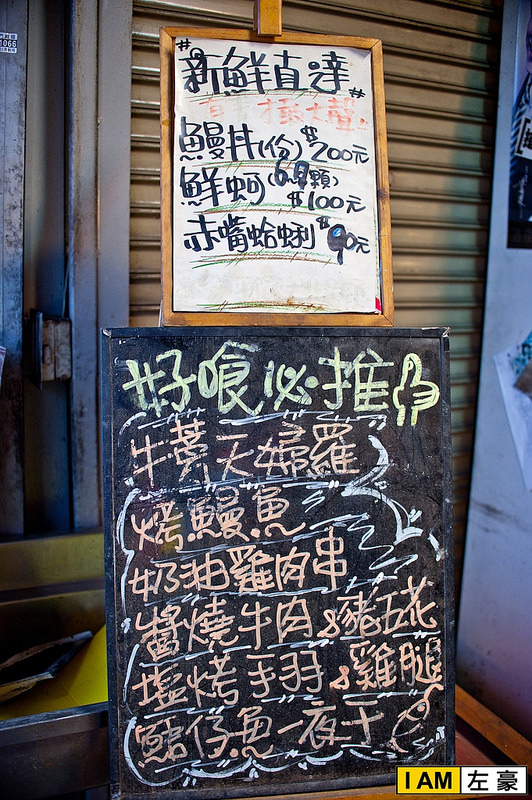 #新鮮直達#
鰻丼(份)$200元
鮮蚵(6.7顆)
$100元
赤嘴蛤蜊$90元
#好喰必推
牛蒡天婦羅
烤鰻魚
奶油雞肉串
醬燒牛肉&豬五花
塩烤手羽&雞腿
魚一夜干
1066
I AM 左豪